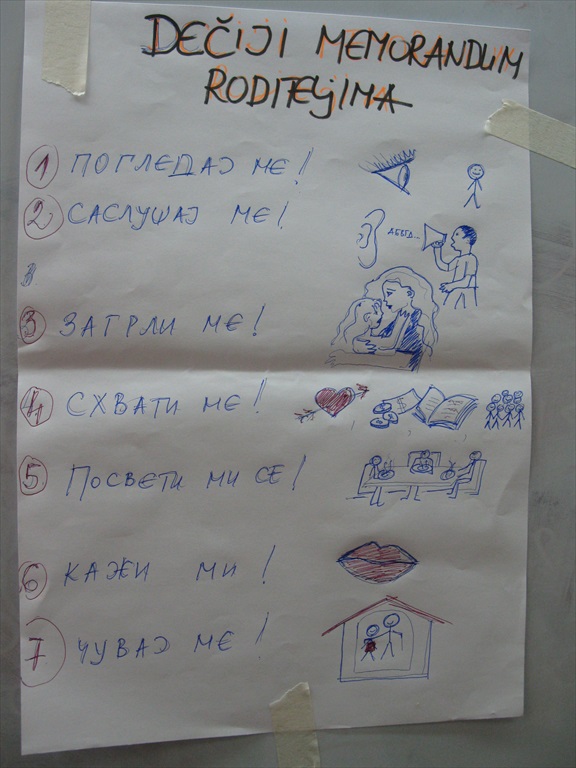 DEČIJI MEMORANDUM
RODITELJIMA
1 ПОГЛЕДАЈ МЕ!
2 САСЛУШАЈ МЕ!
АБВГД...
3
3 ЗАГРЛИ МЕ!
4 СХВАТИ МЕ!
5 ПОСВЕТИ МИ СЕ!
6 КАЖИ МИ!
7 ЧУВАЈ МЕ!